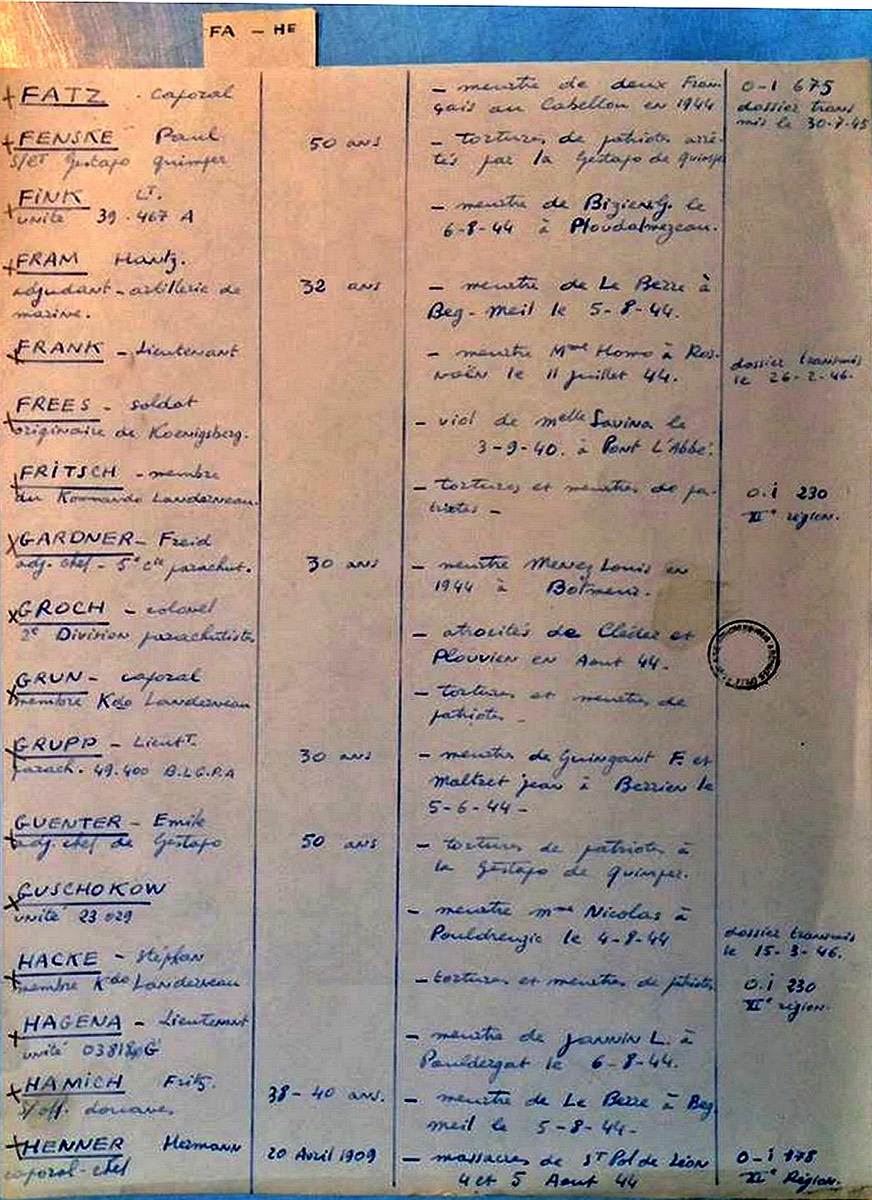 FA - HE
+ FATZ - caporal
- meurtre de deux Fran-
çais au Cabellou en 1944
0-I 675
dossier trans
mis le 30-7-45
+ FENSKE Paul
S/Lt Gestapo Quimper
50 ans
- tortures de patriotes arrê-
tés par la Gestapo de Quimper
+ FINK Lt.
unité 39.467 A
- meurtre de Bizien G. le
6-8-44 à Ploudalmezeau.
+ FRAM Hantz.
adjudant - artillerie de
marine.
32 ans
- meurtre de Le Berre à
Beg-Meil le 5-8-44.
+ FRANK - Lieutenant
- meurtre Mme Homo à Ros-
noën le 11 juillet 44.
dossier transmis
le 26-2-46.
+ FREES - soldat
originaire de Koenigsberg.
- viol de Melle Savina le
3-9-40. à Pont L'Abbé.
+ FRITSCH - membre
du Kommando Landerneau.
- tortures et meurtres de pa-
triotes -
0.i 230
XIe région.
X GARDNER - Freid
adj. chef - 5e cie parachut.
30 ans
- meurtre Menez Louis en
1944 à Botmeur.
X GROCH - colonel
2e Division parachutistes
- atrocités de Cléder et
Plouvien en Aout 44.
X GRUN - caporal
membre Kdo Landerneau
- tortures et meurtres de
patriotes -
X GRUPP - Lieutt.
parach. 49.400 B.L.G.P.A
30 ans
- meurtre de Guingant F. et
Maltret jean à Berrien le
5-6-44 -
+ GUENTER - Emile
adj. chef de Gestapo
50 ans
- tortures de patriotes à
la Gestapo de Quimper.
X GUSCHOKOW
unité 23 029
- meurtre Mme Nicolas à
Pouldreuzic le 4-8-44
dossier transmis
le 15-3-46.
X HACKE - Stéphan
membre Kdo Landerneau
- tortures et meurtres de patriotes
0.i 230
XIe région.
X HAGENA - Lieutenant
unité 03818 G
- meurtre de Jannin L. à
Pouldergat le 6-8-44.
X HAMICH Fritz.
s/off. douanes
38-40 ans.
- meurtre de Le Berre à Beg
meil le 5-8-44-
+ HENNER Hermann
caporal-chef
20 Avril 1909
- massacres de St Pol de Léon
4 et 5 Aout 44
0-i 178
XIe Région.